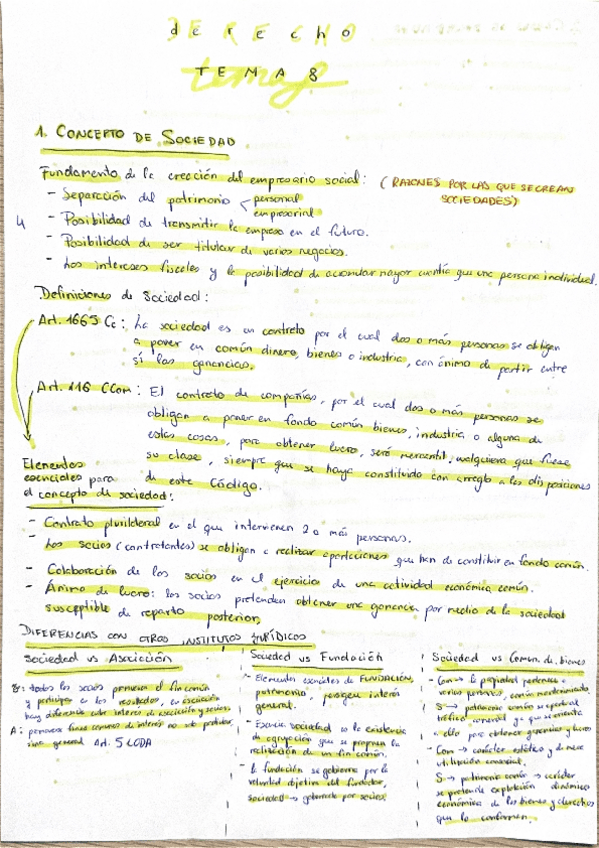 DERECHO
derecho
TEMA 8
tema 8
1. CONCEPTO DE SOCIEDAD
Fundamento de la creación del empresario social: (RAZONES POR LAS QUE SE CREAN
SOCIEDADES)
- Separación del patrimonio < personal
empresarial
- Posibilidad de transmitir la empresa en el futuro.
- Posibilidad de ser titular de varios negocios.
- Los intereses fiscales y la posibilidad de acumular mayor cuantía que una persona individual.
Definiciones de Sociedad:
Art. 1665 Cc: La sociedad es un contrato por el cual dos o más personas se obligan
a poner en común dinero, bienes o industria, con ánimo de partir entre
sí las ganancias.
Art. 116 CCom: El contrato de compañías, por el cual dos o más personas se
obligan a poner en fondo común bienes, industria o alguna de
estas cosas, para obtener lucro, será mercantil, cualquiera que fuese
su clase, siempre que se haya constituido con arreglo a las disposiciones
de este Código.
Elementos
esenciales para
el concepto de sociedad:
- Contrato plurilateral en el que intervienen 2 o más personas.
- Los socios (contratantes) se obligan a realizar aportaciones que han de constituir en fondo común.
- Colaboración de los socios en el ejercicio de una actividad económica común.
- Ánimo de lucro: los socios pretenden obtener una ganancia por medio de la sociedad
susceptible de reparto posterior.
DIFERENCIAS CON OTROS INSTITUTOS JURÍDICOS
Sociedad vs Asociación
S: todos los socios promueven el fin común
y participan en los resultados, en asociación
hay diferencia entre interés de asociación y socios.
A: persiguen fines comunes de interés no solo particular,
sino general Art. 5 LODA
Sociedad vs Fundación
- Elementos esenciales de FUNDACIÓN,
patrimonio, persiguen interés
general.
- Esencia sociedad es la existencia
de agrupación que se proponga la
realización de un fin común.
- La fundación se gobierna por la
voluntad objetiva del fundador,
sociedad → gobernada por socios.
Sociedad vs Comun. de bienes
- Com → la propiedad pertenece a
varias personas, común
S → patrimonio común se
tráfico comercial ya que se
ello para obtener ganancias y lucros
- Com → carácter estático y de mera
utilización comercial.
S → patrimonio común → carácter
se pretende explotación dinámica
económica de los bienes y derechos
que lo conforman.